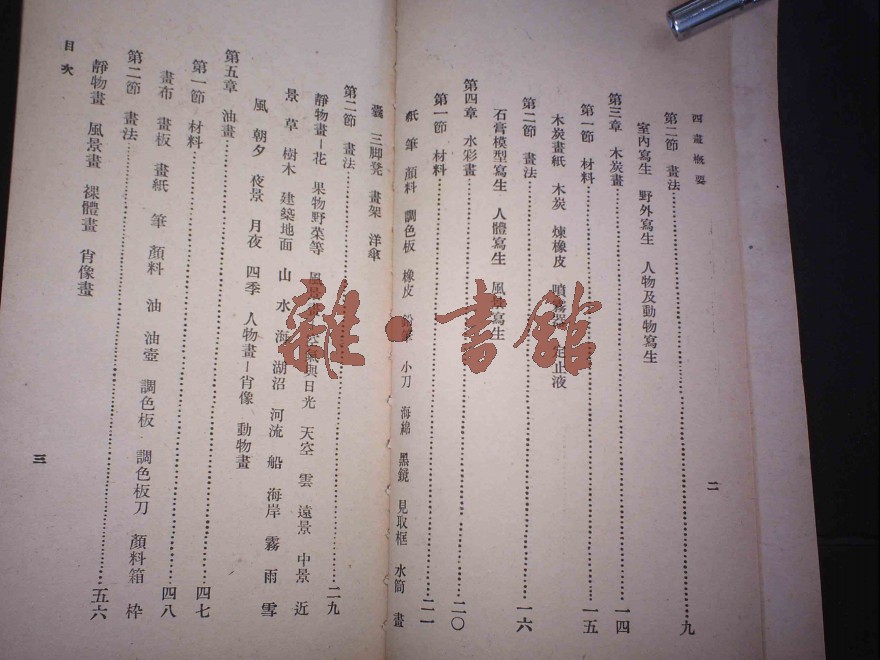 西畫概要
第二節 畫法……九
室內寫生 野外寫生 人物及動物寫生
第三章 木炭畫……一四
第一節 材料……一五
木炭畫紙 木炭 煉橡皮 噴霧器 定止液
第二節 畫法……一六
石膏模型寫生 人體寫生 風景寫生
第四章 水彩畫……二〇
第一節 材料……二一
紙 筆 顏料 調色板 橡皮 鉛筆 小刀 海綿 黑鏡 見取框 水筒 畫
二
囊 三脚凳 畫架 洋傘
第二節 畫法……二九
靜物畫—花 果物野菜等 風景畫 與日光 天空 雲 遠景 中景 近
景 草 樹木 建築地面 山 水 海 湖沼 河流 船 海岸 霧 雨 雪
風 朝夕 夜景 月夜 四季 人物畫—肖像 動物畫
第五章 油畫……四七
第一節 材料……四八
畫布 畫板 畫紙 筆 顏料 油 油壺 調色板 調色板刀 顏料箱 枠
第二節 畫法……五六
靜物畫 風景畫 裸體畫 肖像畫
目次
三
雜·書館